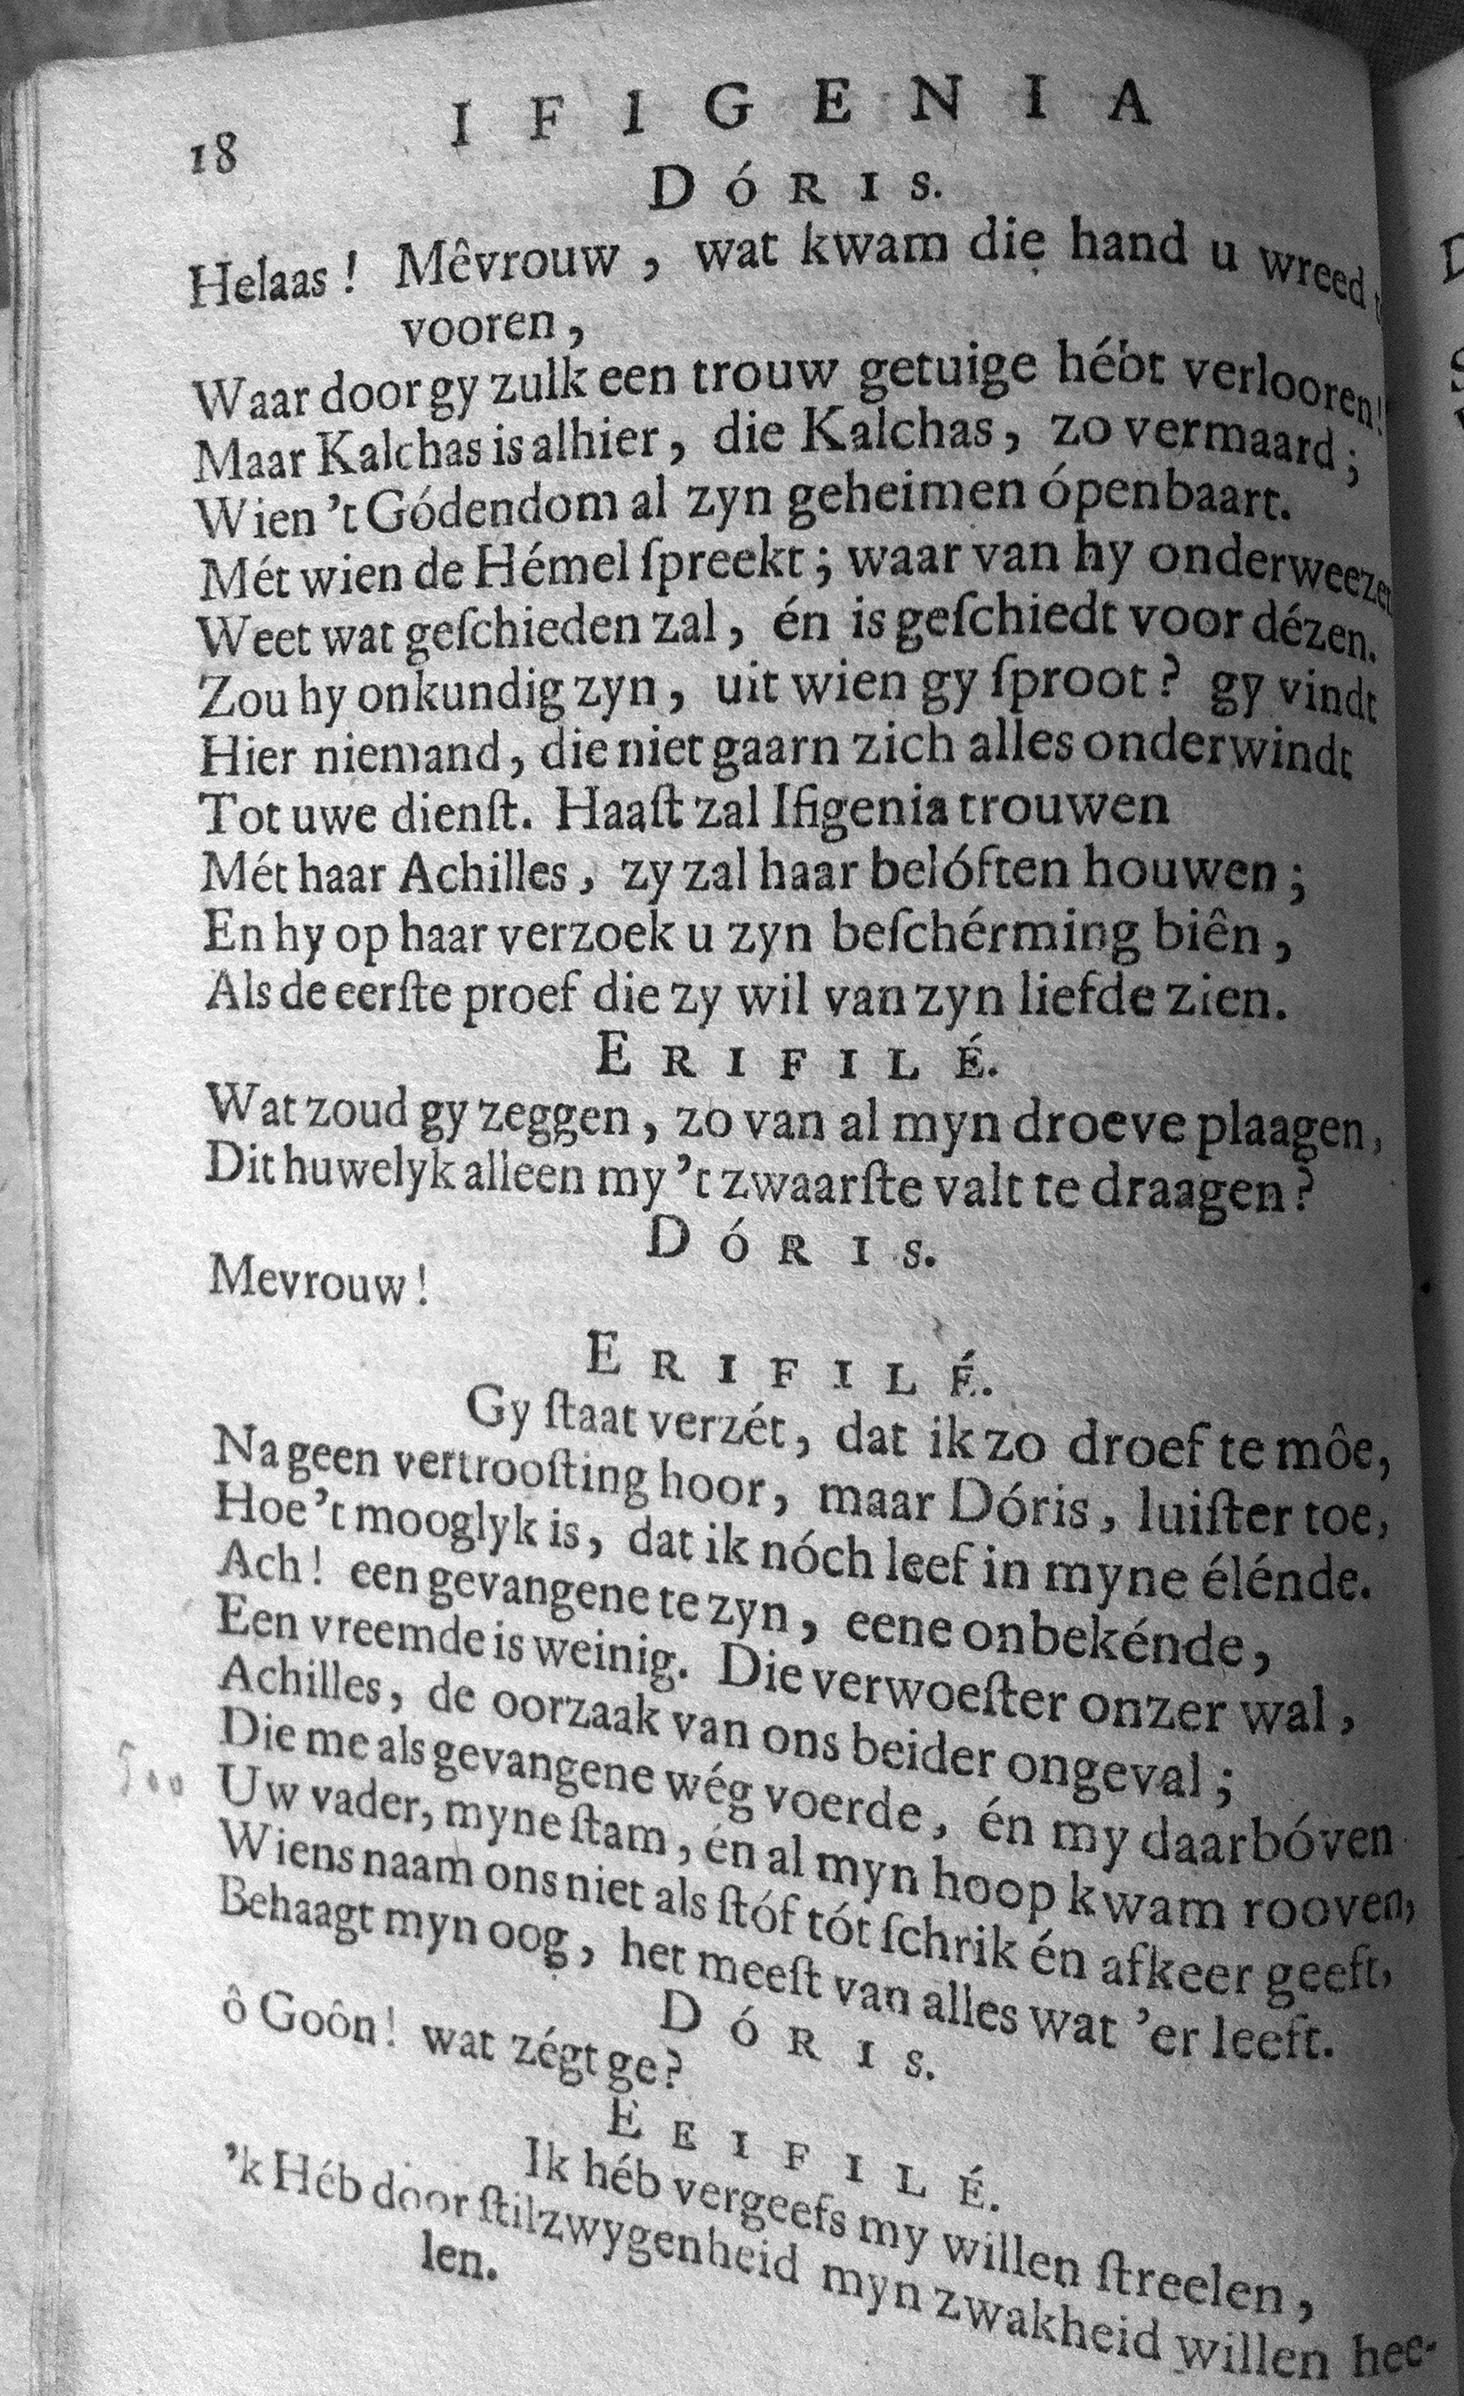 18 IFIGENIA
DóRIS.
Helaas! Mêvrouw, wat kwam die hand u wreed
vooren,
Waar door gy zulk een trouw getuige hébt verlooren!
Maar Kalchas is alhier, die Kalchas, zo vermaard;
Wien 't Gódendom al zyn geheimen ópenbaart.
Mét wien de Hémel ſpreekt; waar van hy onderweezen
Weet wat geſchieden zal, én is geſchiedt voor dézen.
Zou hy onkundig zyn, uit wien gy ſproot? gy vindt
Hier niemand, die niet gaarn zich alles onderwindt
Tot uwe dienſt. Haaſt zal Ifigenia trouwen
Mét haar Achilles, zy zal haar belóften houwen;
En hy op haar verzoek u zyn beſchérming biên,
Als de eerſte proef die zy wil van zyn liefde zien.
ERIFILÉ.
Wat zoud gy zeggen, zo van al myn droeve plaagen,
Dit huwelyk alleen my 't zwaarſte valt te draagen?
DóRIS.
Mevrouw!
ERIFILÉ.
Gy ſtaat verzét, dat ik zo droef te môe,
Na geen vertrooſting hoor, maar Dóris, luiſter toe,
Hoe 't mooglyk is, dat ik nóch leef in myne élénde.
Ach! een gevangene te zyn, eene onbekénde,
Een vreemde is weinig. Die verwoeſter onzer wal,
Achilles, de oorzaak van ons beider ongeval;
Die me als gevangene wég voerde, én my daarbóven
500 Uw vader, myne ſtam, én al myn hoop kwam rooven,
Wiens naam ons niet als ſtóf tót ſchrik én afkeer geeft,
Behaagt myn oog, het meeſt van alles wat 'er leeft.
DóRIS.
ô Goôn! wat zégt ge?
EEIFILÉ.
Ik héb vergeefs my willen ſtreelen,
'k Héb door ſtilzwygenheid myn zwakheid willen hee-
len.